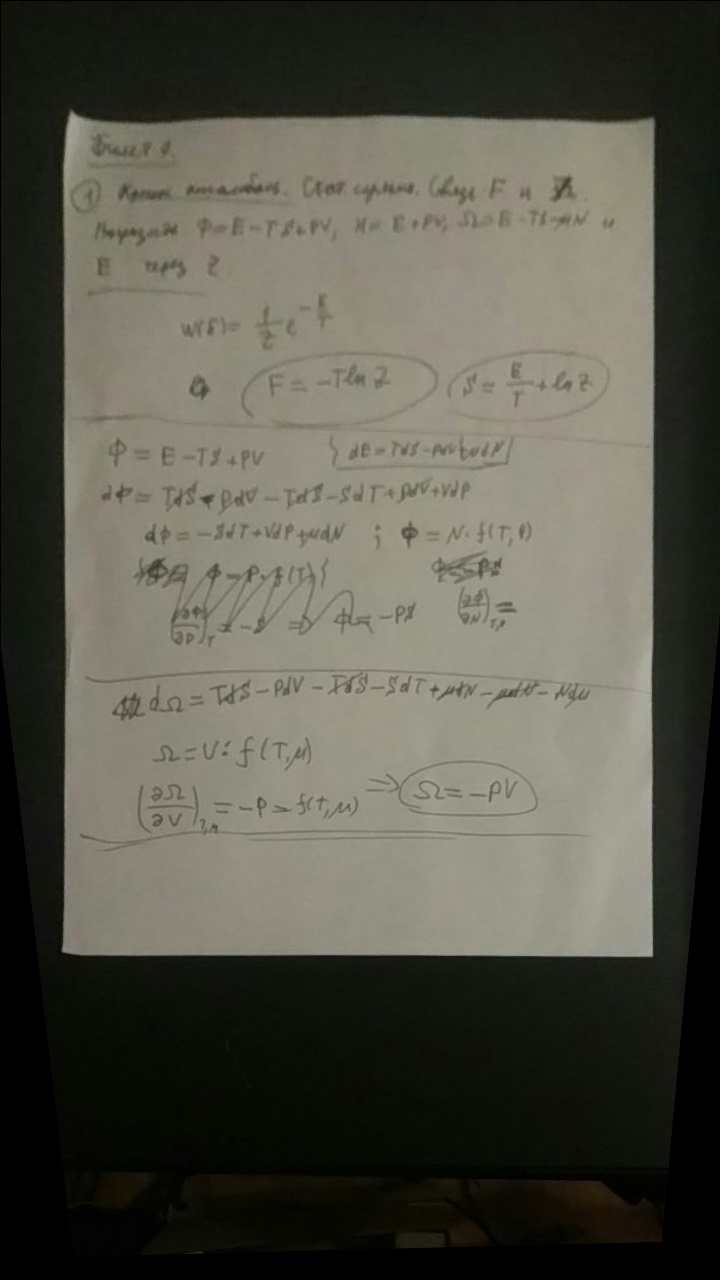 Билет 9.
① Канон. ансамбль. Стат. сумма. Связь F и Z.
Выразить Φ = E - TS + PV, H = E + PV, Ω = E - TS - μN и
E через Z
w(E) = 1/Z e^{-E/T}
F = -T ln Z    S = E/T + ln Z
Φ = E - TS + PV    { dE = TdS - PdV + μdN }
dΦ = TdS - PdV - TdS - SdT + PdV + VdP
dΦ = -SdT + VdP + μdN ; Φ = N · f(T, P)
(∂Φ/∂P)_T = -S ⇒ Φ = -PS    (∂Φ/∂N)_{T,P} =
dΩ = TdS - PdV - TdS - SdT + μdN - μdN - Ndμ
Ω = V · f(T, μ)
(∂Ω/∂V)_{T,μ} = -P = f(T, μ) ⇒ Ω = -PV